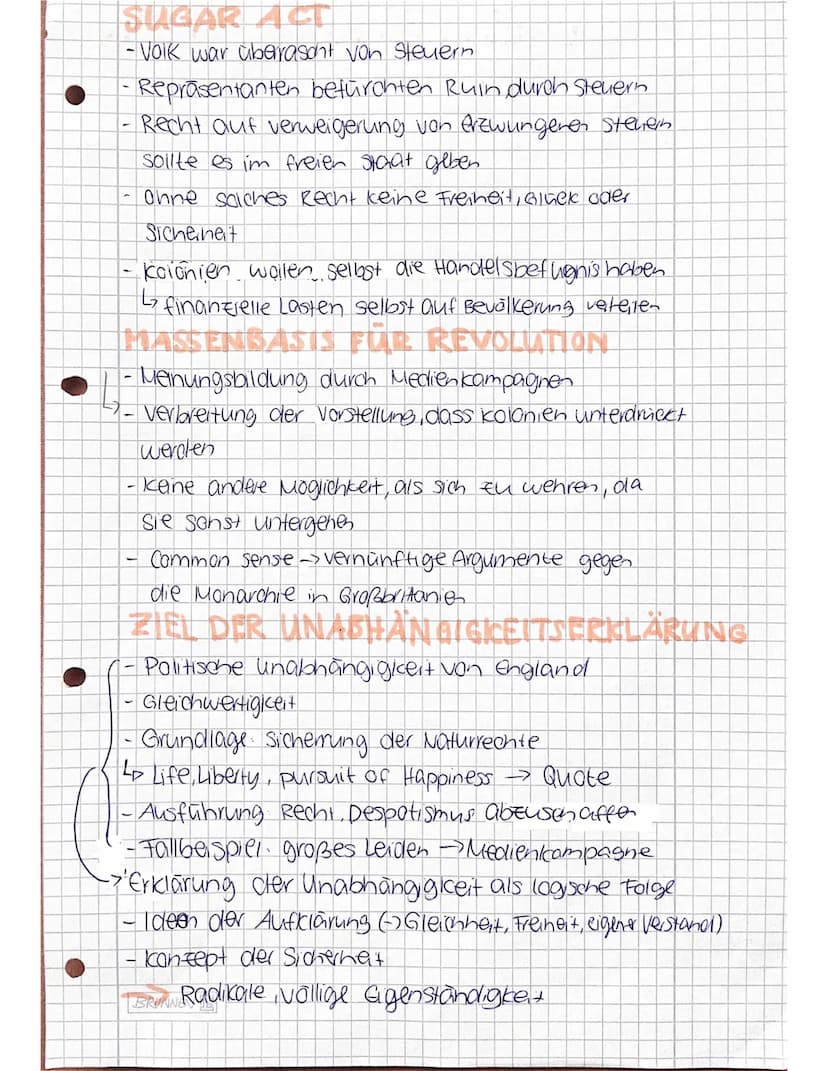 SUGAR ACT
- Volk war überascht von Steuern
- Repräsentanten befürchten Ruin durch Steuern
- Recht auf verweigerung von erzwungenen Steuern
sollte es im freien Staat geben
- Ohne solches Recht keine Freiheit, Glück oder
Sicherheit
- Kolonien wollen selbst die Handelsbefugnis haben
↳ finanzielle Lasten selbst auf Bevölkerung verteilen
MASSENBASIS FÜR REVOLUTION
- Meinungsbildung durch Medienkampagnen
- Verbreitung der Vorstellung, dass Kolonien unterdrückt
werden
- Keine andere Möglichkeit, als sich zu wehren, da
sie sonst untergehen
- Common sense → vernünftige Argumente gegen
die Monarchie in Großbritanien
ZIEL DER UNABHÄNGIGKEITSERKLÄRUNG
- Politische Unabhängigkeit von England
- Gleichwertigkeit
- Grundlage: Sicherung der Naturrechte
↳ Life, Liberty, pursuit of Happiness → Quote
- Ausführung: Recht, Despotismus abzuschaffen
- Fallbeispiel: großes Leiden → Medienkampagne
→ Erklärung der Unabhängigkeit als logische Folge
- Ideen der Aufklärung (→ Gleichheit, Freiheit, eigener Verstand)
- Konzept der Sicherheit
→ Radikale, völlige Eigenständigkeit
BRUNNEN